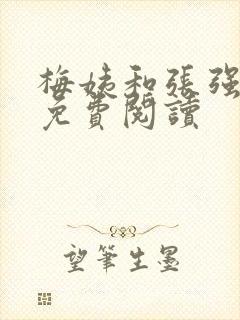 梅姨和張強
免費閱讀
望筆生墨